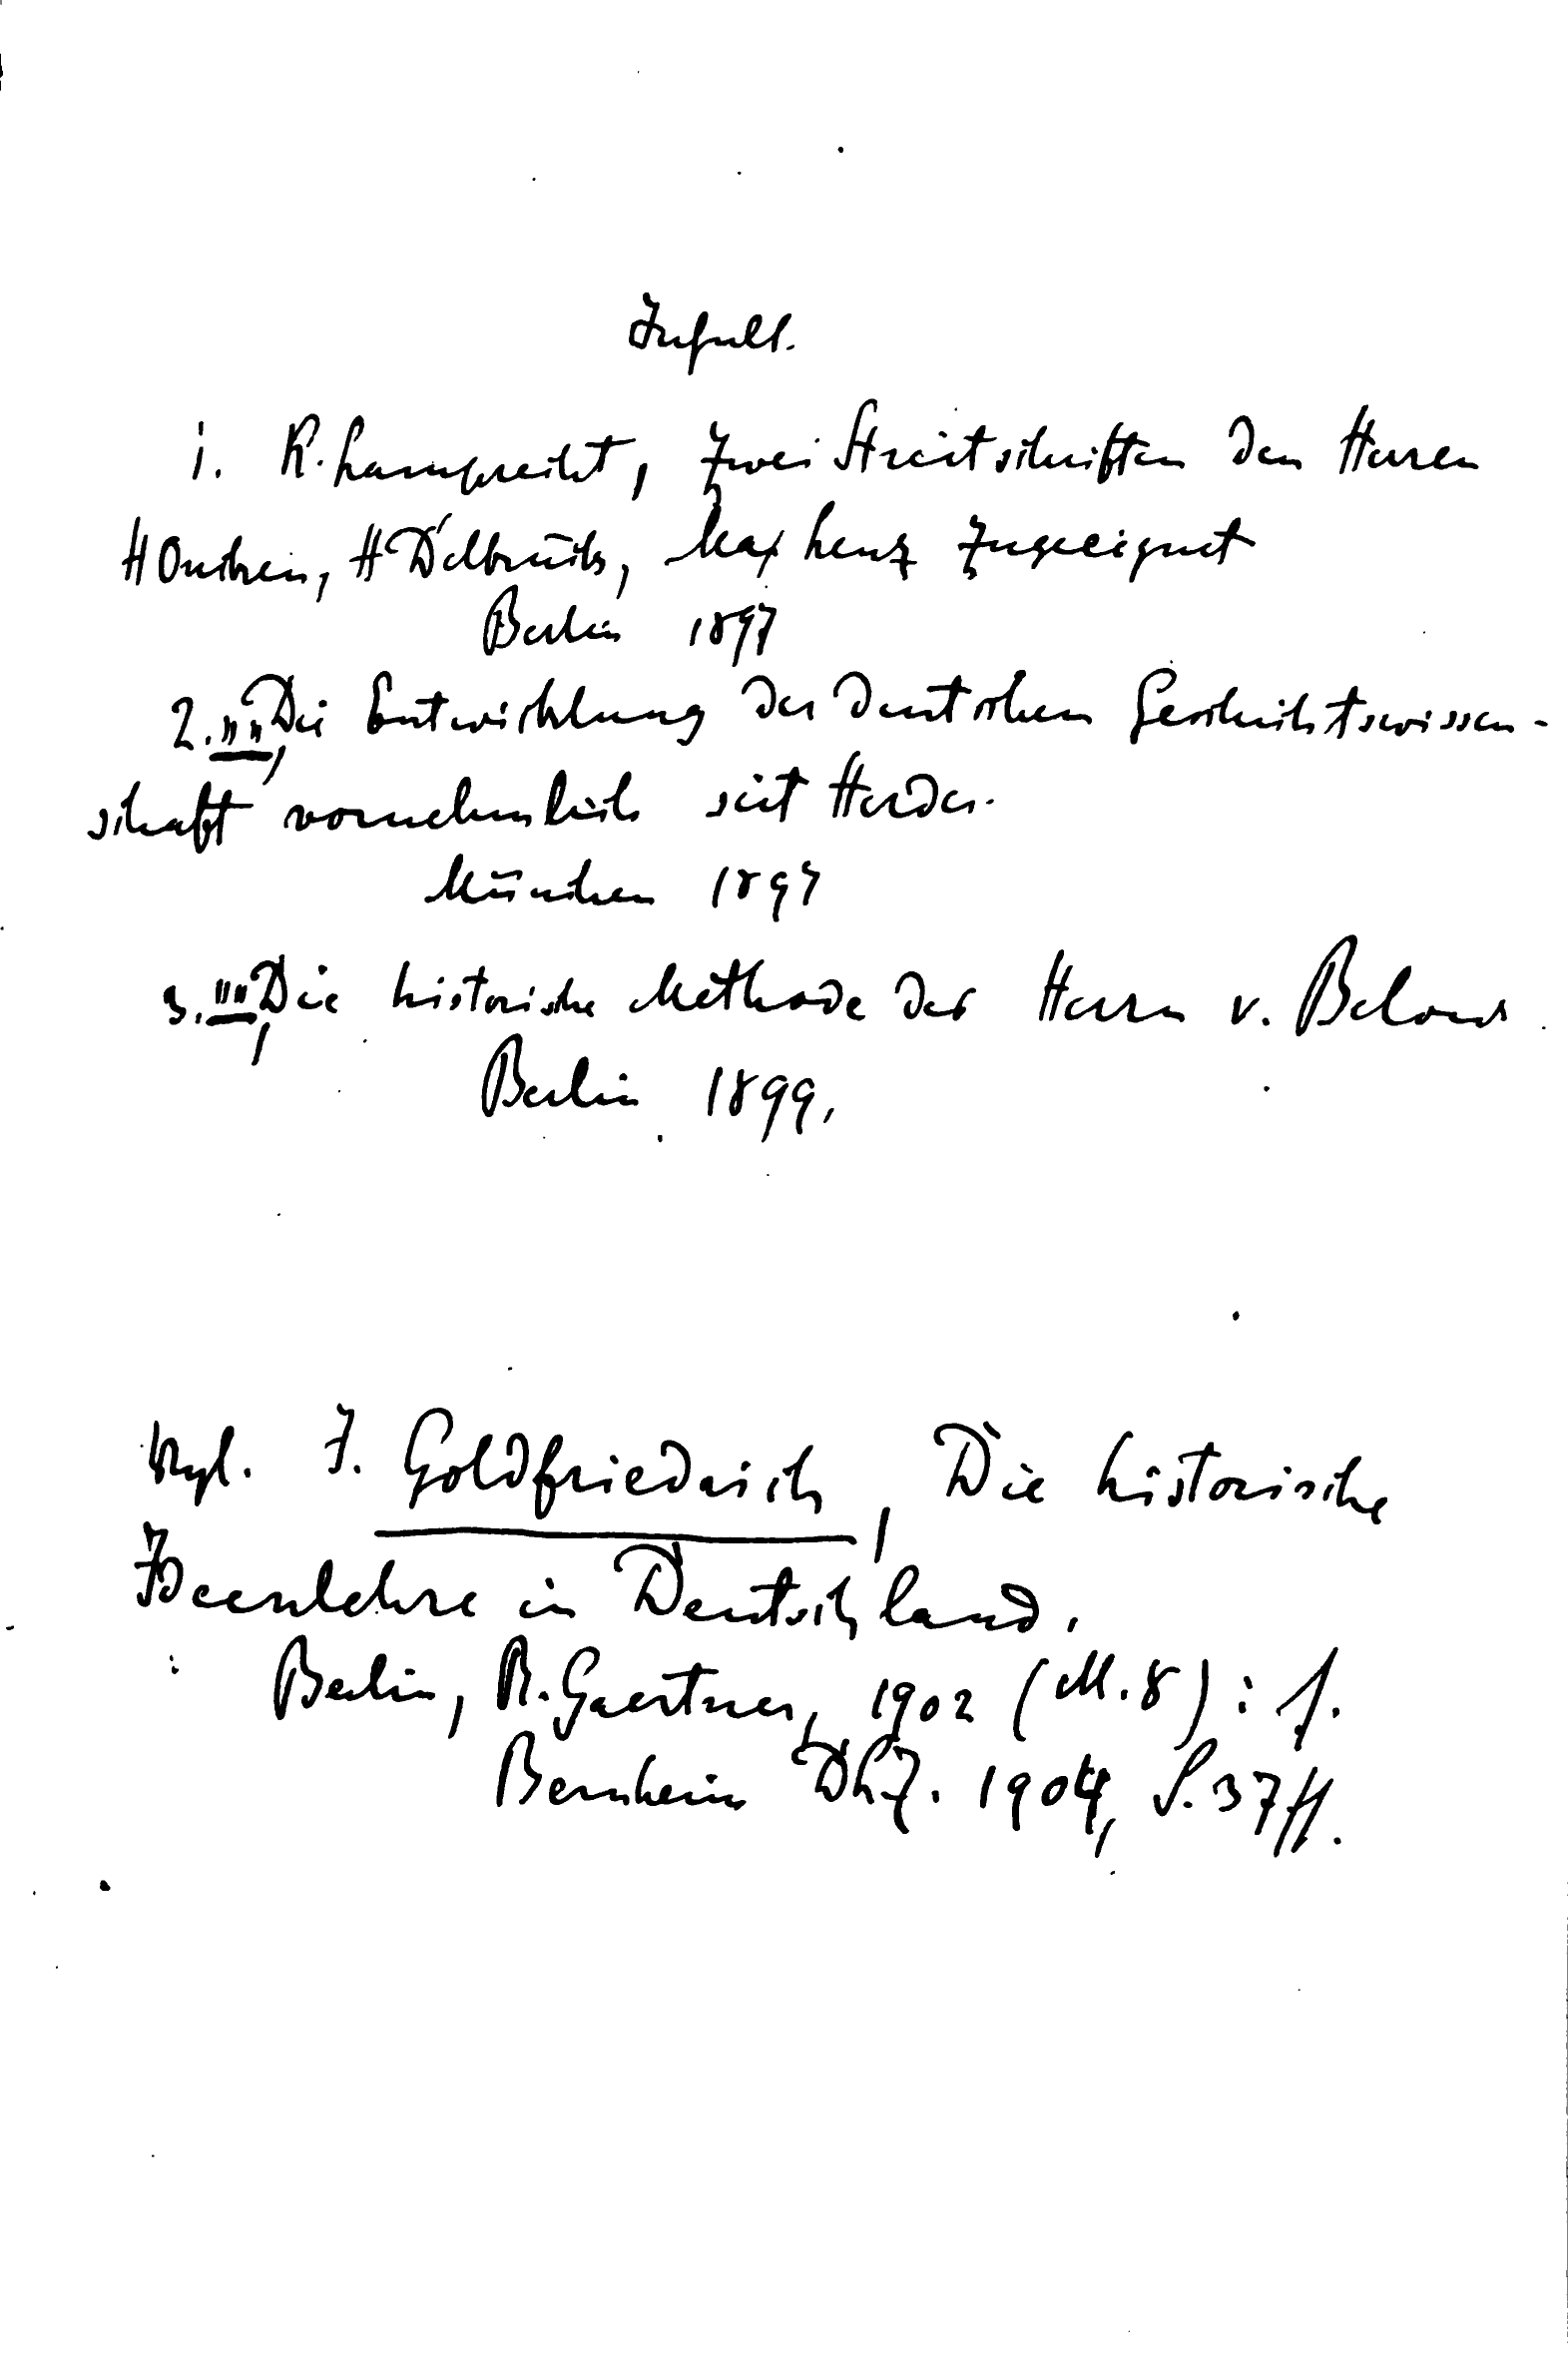 Inhalt.
1. K. Lamprecht, Zwei Streitschriften den Herren
H Oncken, H Delbrück, Max Lenz zugeeignet
Berlin 1897
2. "" "", Die Entwicklung der deutschen Geschichtswissen-
schaft vornehmlich seit Herder.
München 1897
3. "" "", Die historische Methode des Herrn v. Below
Berlin 1899.
Vgl. J. Goldfriedrich, Die historische
Ideenlehre in Deutschland.
Berlin, R. Gaertner, 1902 (M. 8): f.
Bernheim DLZ. 1904, S. 37 ff.